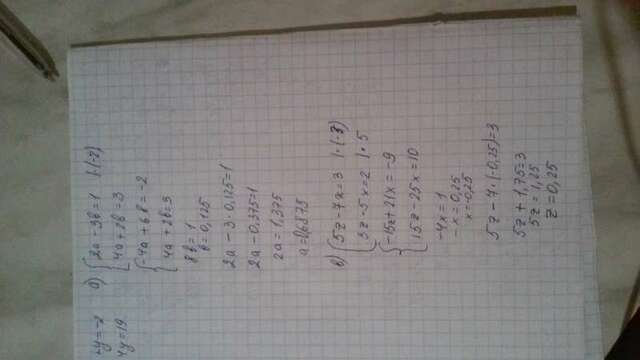 2y=-2
4y=19
б) {2a-3b=1 |·(-2)
{4a+2b=3
{-4a+6b=-2
{4a+2b=3
8b=1
b=0,125
2a-3·0,125=1
2a-0,375=1
2a=1,375
a=0,6875
в) {5z-4x=3 |·(-3)
{3z-5x=2 |·5
{-15z+21x=-9
{15z-25x=10
-4x=1
-x=0,25
x=-0,25
5z-4·(-0,25)=3
5z+1,75=3
5z=1,25
z=0,25